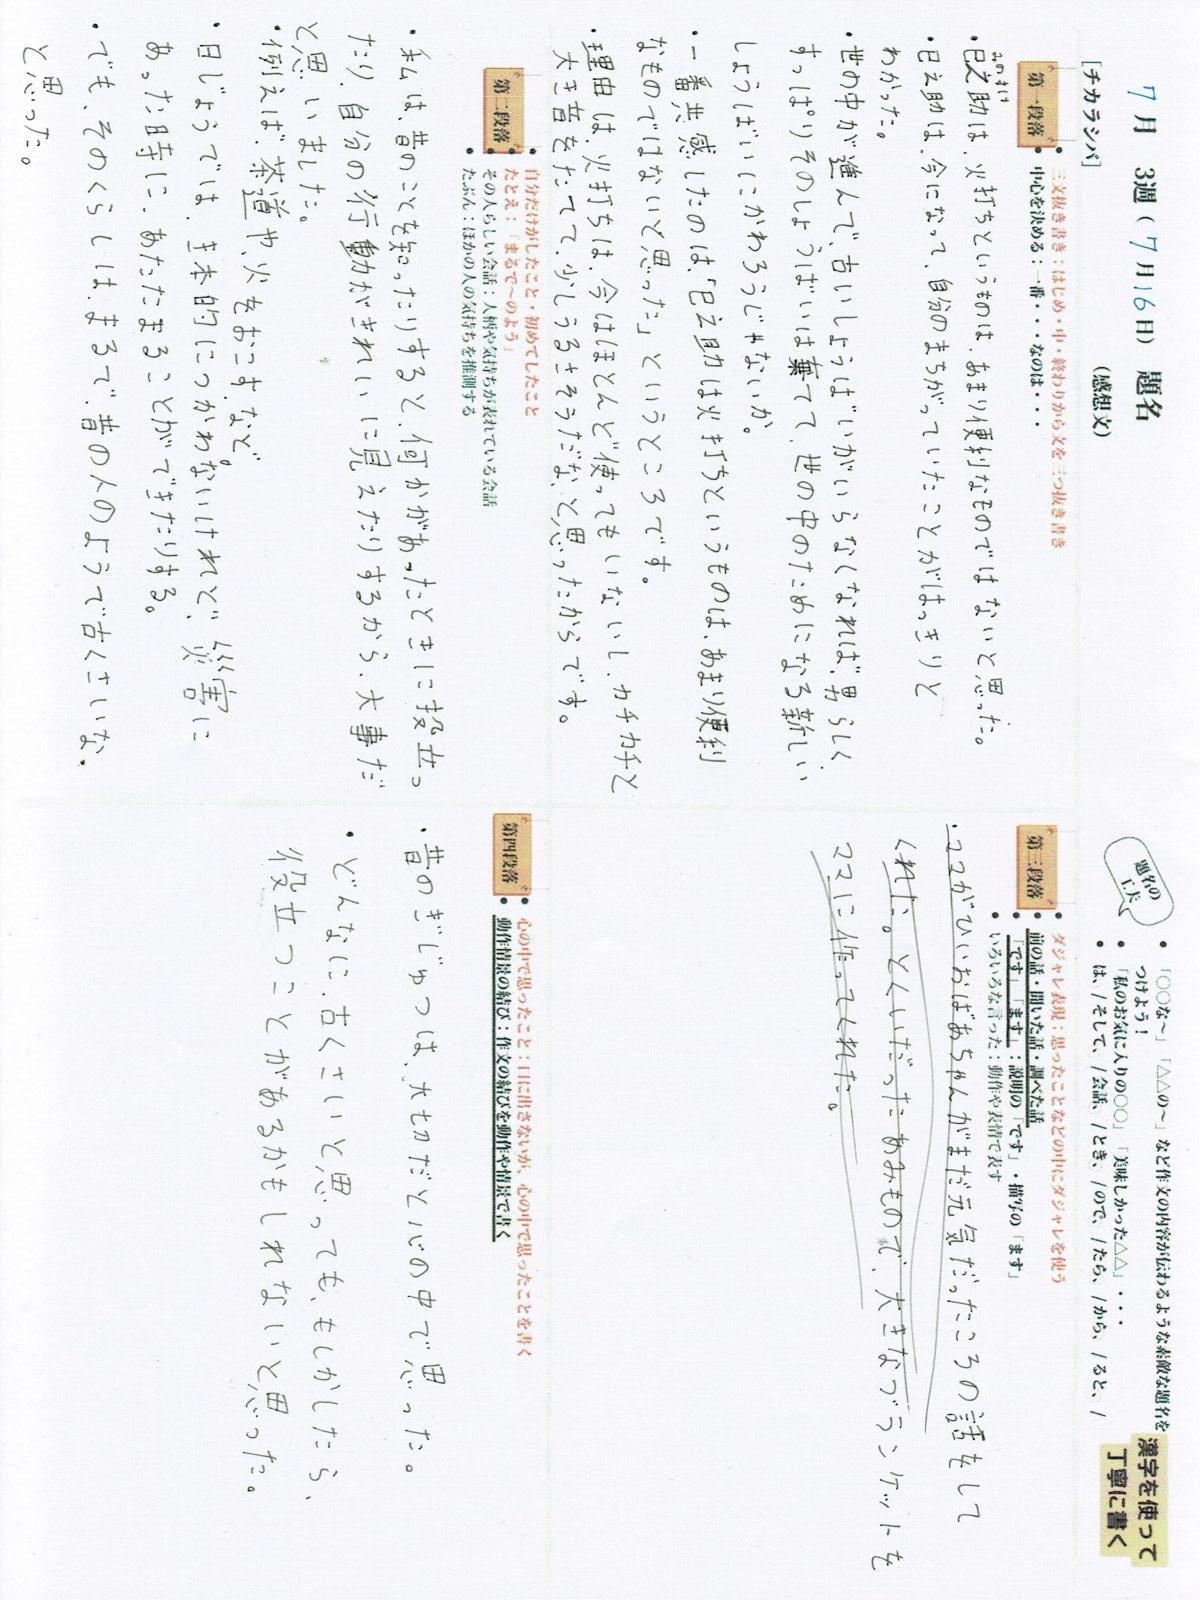 7月 3週(7月16日) 題名
(感想文)
[チカラシバ]
第一段落
三文抜き書き:はじめ・中・終わりから文を三つ抜き書き
中心を決める:一番・・・なのは・・・
・巳之助は、火打ちというものは、あまり便利なものではないと思った。
みのすけ
・巳之助は、今になって、自分のまちがっていたことがはっきりと
わかった。
・世の中が進んで、古いしょうばいがいらなくなれば、男らしく、
すっぱりそのしょうばいは棄てて、世の中のためになる新しい
しょうばいにかわろうじゃないか。
・一番共感したのは、「巳之助は火打ちというものは、あまり便利
なものではないと思った」というところです。
・理由は、火打ちは、今はほとんど使ってもいないし、カチカチと
大き音をたてて、少しうるさそうだな、と思ったからです。
第二段落
自分だけがしたこと・初めてしたこと
たとえ:「まるで〜のよう」
その人らしい会話:人柄や気持ちが表れている会話
たぶん:ほかの人の気持ちを推測する
・私は、昔のことを知ったりすると、何かがあったときに役立っ
たり、自分の行動がきれいに見えたりするから、大事だ
と思いました。
・例えば、茶道や、火をおこす、など。
・日じょうでは、き本的につかわないけれど、災害に
あった時に、あたたまることができたりする。
・でも、そのくらしは、まるで、昔の人のようで古くさいな、
と思った。
題名の
工夫
「○○な〜」「△△の〜」など作文の内容が伝わるような素敵な題名を
つけよう!
「私のお気に入りの○○」「美味しかった△△」・・・
は、/そして、/会話、/とき、/ので、/たら、/から、/ると、/
漢字を使って
丁寧に書く
第三段落
ダジャレ表現:思ったことなどの中にダジャレを使う
前の話・聞いた話・調べた話
「です」「ます」:説明の「です」・描写の「ます」
いろいろな言った:動作や表情で表す
・ママがひいおばあちゃんがまだ元気だったころの話をして
くれた。とくいだったあみもので、大きなブランケットを
ママに作ってくれた。
第四段落
心の中で思ったこと:口に出さないが、心の中で思ったことを書く
動作情景の結び:作文の結びを動作や情景で書く
・昔のぎじゅつは、大切だと心の中で思った。
・どんなに、古くさいと思っても、もしかしたら、
役立つことがあるかもしれないと思った。